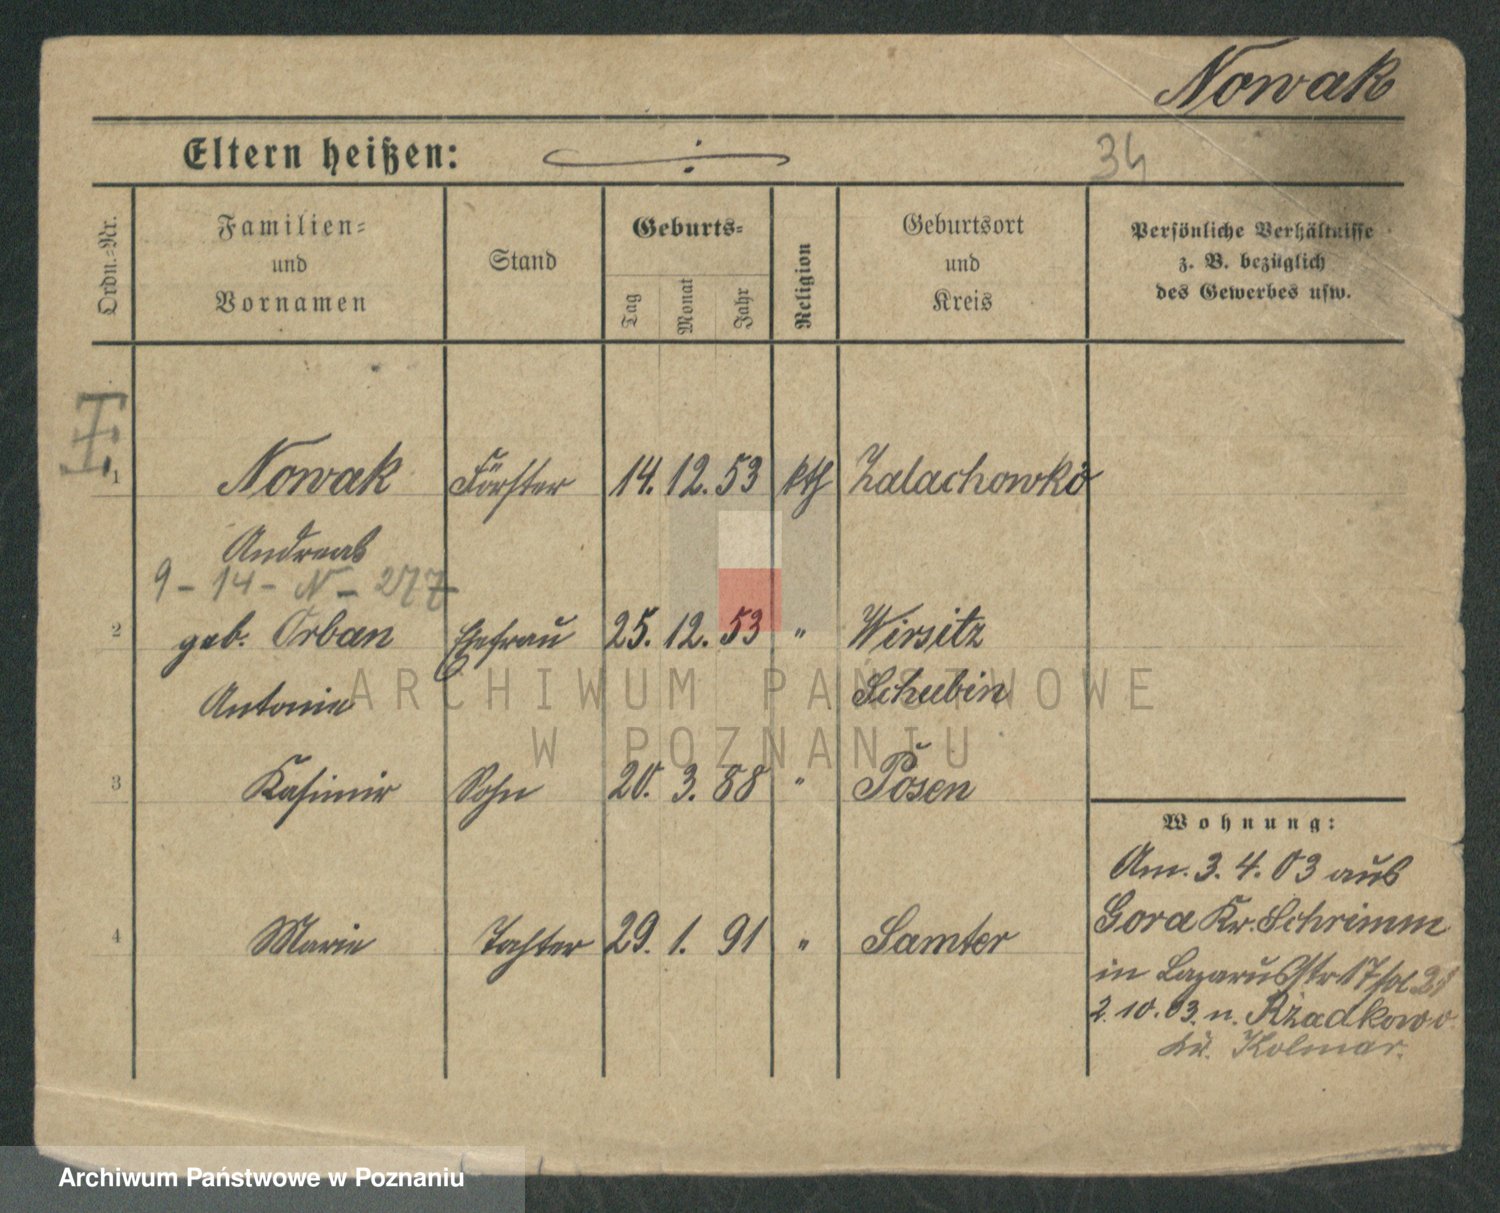 Nowak
Eltern heißen: 34
Ordn.-Nr.
Familien-
und
Vornamen
Stand
Geburts-
Tag Monat Jahr
Religion
Geburtsort
und
Kreis
Persönliche Verhältnisse
z. B. bezüglich
des Gewerbes usw.
1 Nowak Förster 14. 12. 53 kth Zalachowko
Andreas
9 - 14 - N - 277
2 geb. Orban Ehefrau 25. 12. 53 " Wirsitz
Antonie Schubin
3 Kasimir Sohn 20. 3. 88 " Posen
4 Marie Tochter 29. 1. 91 " Samter
Wohnung:
Am. 3. 4. 03 aus
Gora Kr. Schrimm
in Lazarusstr 17
2. 10. 03. n. Rzadkowo
Kr. Kolmar.
ARCHIWUM PAŃSTWOWE
W POZNANIU
Archiwum Państwowe w Poznaniu